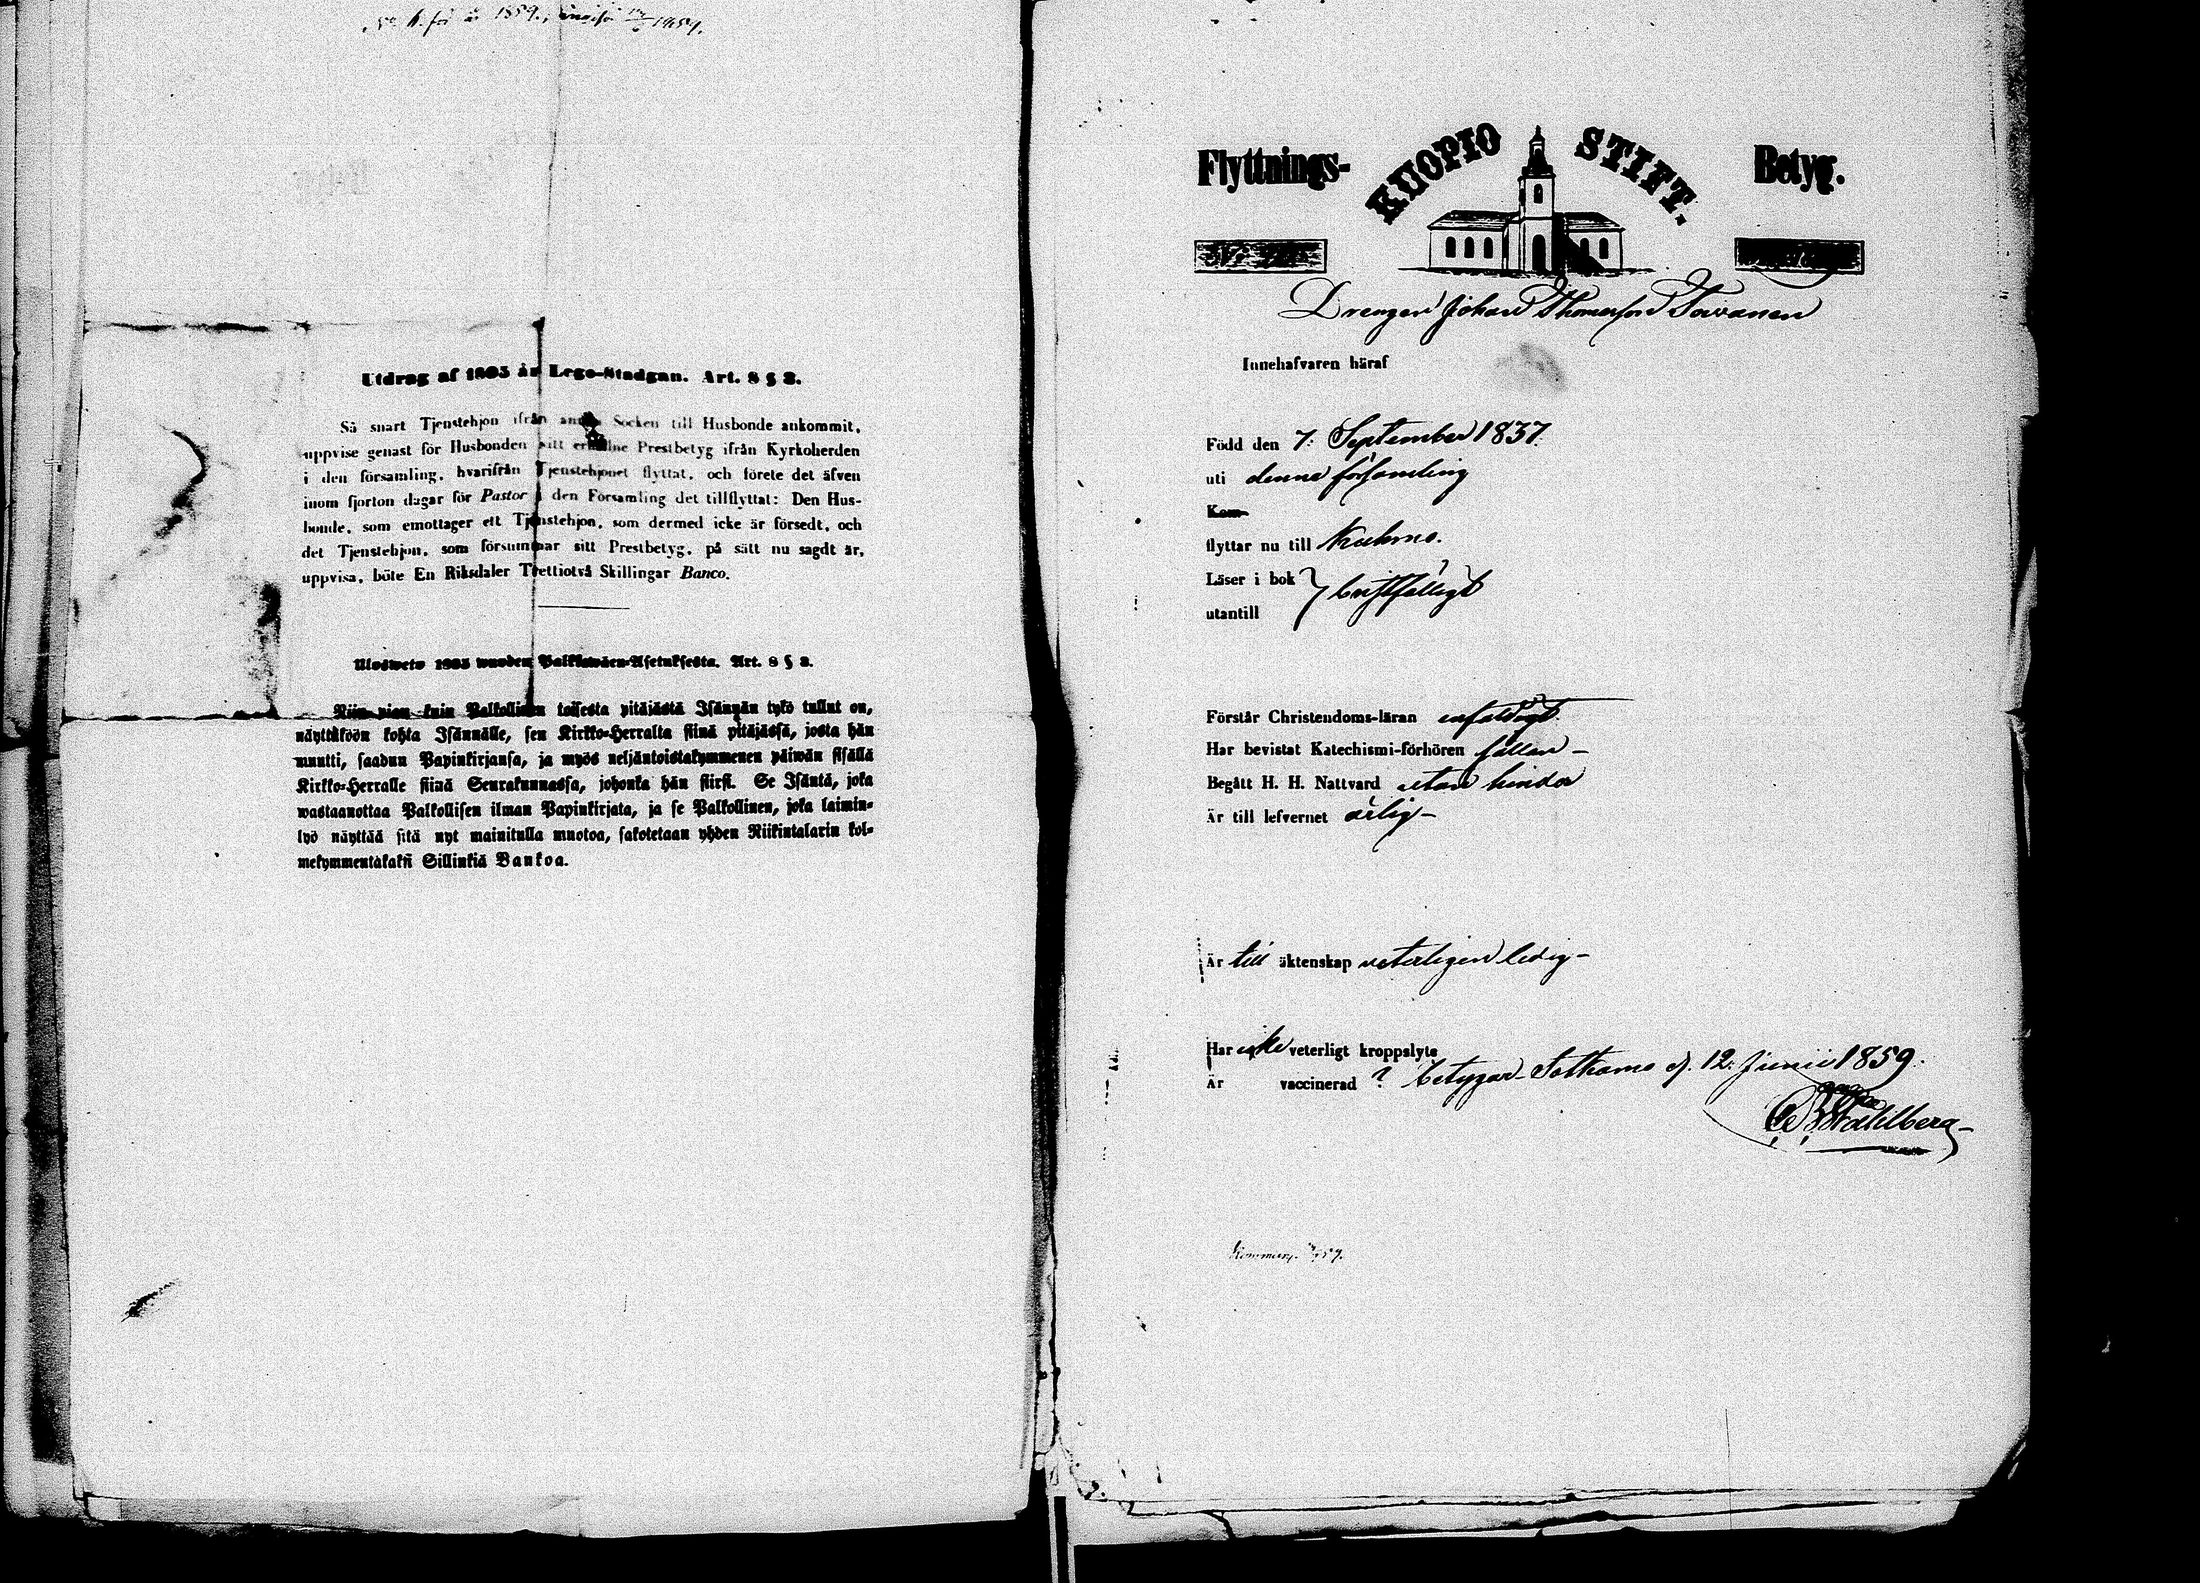 k. för år 1859.
Utdrag af 1805 år Lego-Stadgan. Art. 8 § 3.
Så snart Tjenstehjon ifrån annan Socken till Husbonde ankommit,
uppvise genast för Husbonden sitt erhållne Prestbetyg ifrån Kyrkoherden
i den församling, hvarifrån Tjenstehjonet flyttat, och förete det äfven
inom fjorton dagar för Pastor i den Församling det tillflyttat: Den Hus-
bonde, som emottager ett Tjenstehjon, som dermed icke är försedt, och
det Tjenstehjon, som försummar sitt Prestbetyg, på sätt nu sagdt är,
uppvisa, böte En Riksdaler Trettiotvå Skillingar Banco.
Ulosweto 1805 wuoden Palkkawäen-Asetuksesta. Art. 8 § 3.
Niin pian kuin Palkollinen toisesta pitäjästä Isännän tykö tullut on,
näyttäköön kohta Isännälle, sen Kirkko-Herralta siinä pitäjässä, josta hän
muutti, saadun Papinkirjansa, ja myös neljäntoistakymmenen päiwän sisällä
Kirkko-Herralle siinä Seurakunnassa, johonka hän siirsi. Se Isäntä, joka
wastaanottaa Palkollisen ilman Papinkirjata, ja se Palkollinen, joka laimin-
lyö näyttää sitä nyt mainitulla muotoa, sakotetaan yhden Riikintalarin kol-
mekymmentäkaksi Sillinkiä Bankoa.
Flyttnings- KUOPIO STIFT. Betyg.
Drengen Johan Thomasson Towanen
Innehafvaren häraf
Född den 7. September 1837.
uti denna församling
Kom
flyttar nu till Kuhmo.
Läser i bok
utantill } bristfälligt
Förstår Christendoms-läran enfaldigt.
Har bevistat Katechismi-förhören sällan –
Begått H. H. Nattvard utan hinder
Är till lefvernet ärlig –
Är till äktenskap veterligen ledig –
Har icke veterligt kroppslyte
Är vaccinerad ? betygar Sotkamo d. 12. Junii 1859.
Stahlberg